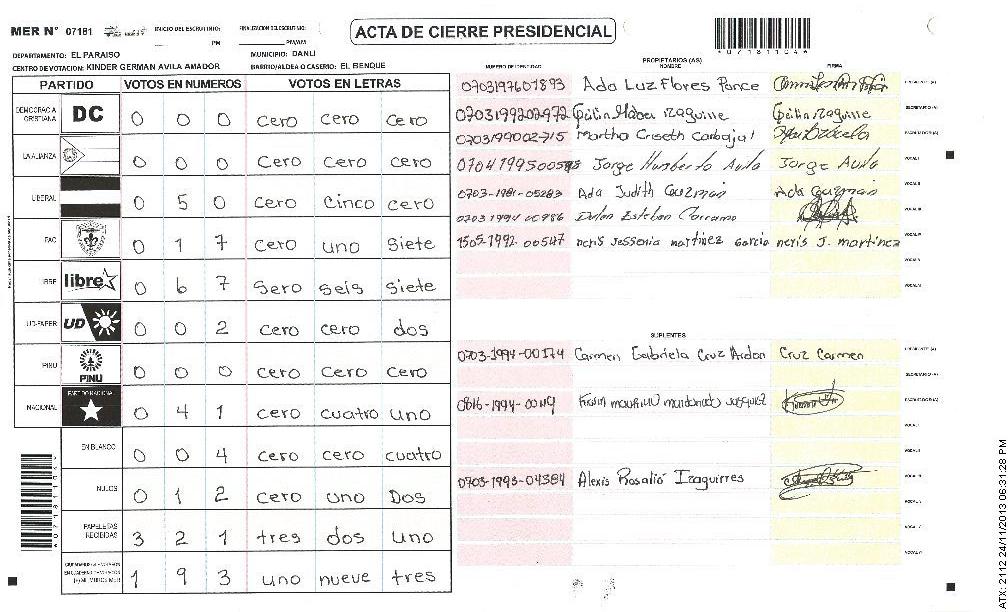 MER N° 07181
INICIO DEL ESCRUTINIO:
PM
FINALIZACION DEL ESCRUTINIO:
PM/AM
ACTA DE CIERRE PRESIDENCIAL
DEPARTAMENTO: EL PARAISO
MUNICIPIO: DANLI
CENTRO DE VOTACION: KINDER GERMAN AVILA AMADOR
BARRIO/ALDEA O CASERIO: EL BENQUE
PARTIDO VOTOS EN NUMEROS VOTOS EN LETRAS
DEMOCRACIA CRISTIANA DC 0 0 0 cero cero cero
LA ALIANZA 0 0 0 cero cero cero
LIBERAL 0 5 0 cero cinco cero
PAC 0 1 7 cero uno siete
LIBRE libre 0 6 7 sero seis siete
UD-FAPER UD 0 0 2 cero cero dos
PINU PINU 0 0 0 cero cero cero
NACIONAL PARTIDO NACIONAL 0 4 1 cero cuatro uno
EN BLANCO 0 0 4 cero cero cuatro
NULOS 0 1 2 cero uno Dos
PAPELETAS RECIBIDAS 3 2 1 tres dos uno
1 9 3 uno nueve tres
NUMERO DE IDENTIDAD
PROPIETARIOS (AS)
NOMBRE
FIRMA
0703197601893 Ada Luz Flores Ponce PRESIDENTE (A)
0703199202972 SECRETARIO (A)
0703199002715 Martha Criseth Carbajal ESCRUTADOR (A)
Jorge Humberto Avila Jorge Avila VOCAL I
0703-1981-05283 Ada Judith Guzmán Ada Guzmán VOCAL II
Dulan Esteban VOCAL III
1505-1992-00547 neris Jessenia martinez Garcia neris J. martinez VOCAL IV
SUPLENTES
0703-1994-00174 Carmen Gabriela Cruz Ardon Cruz Carmen PRESIDENTE (A)
SECRETARIO (A)
maldonado ESCRUTADOR (A)
VOCAL I
VOCAL II
0703-1993-04384 Alexis Rosalio Izaguirres VOCAL III
ATX: 2112 24/11/2013 06:31:28 PM